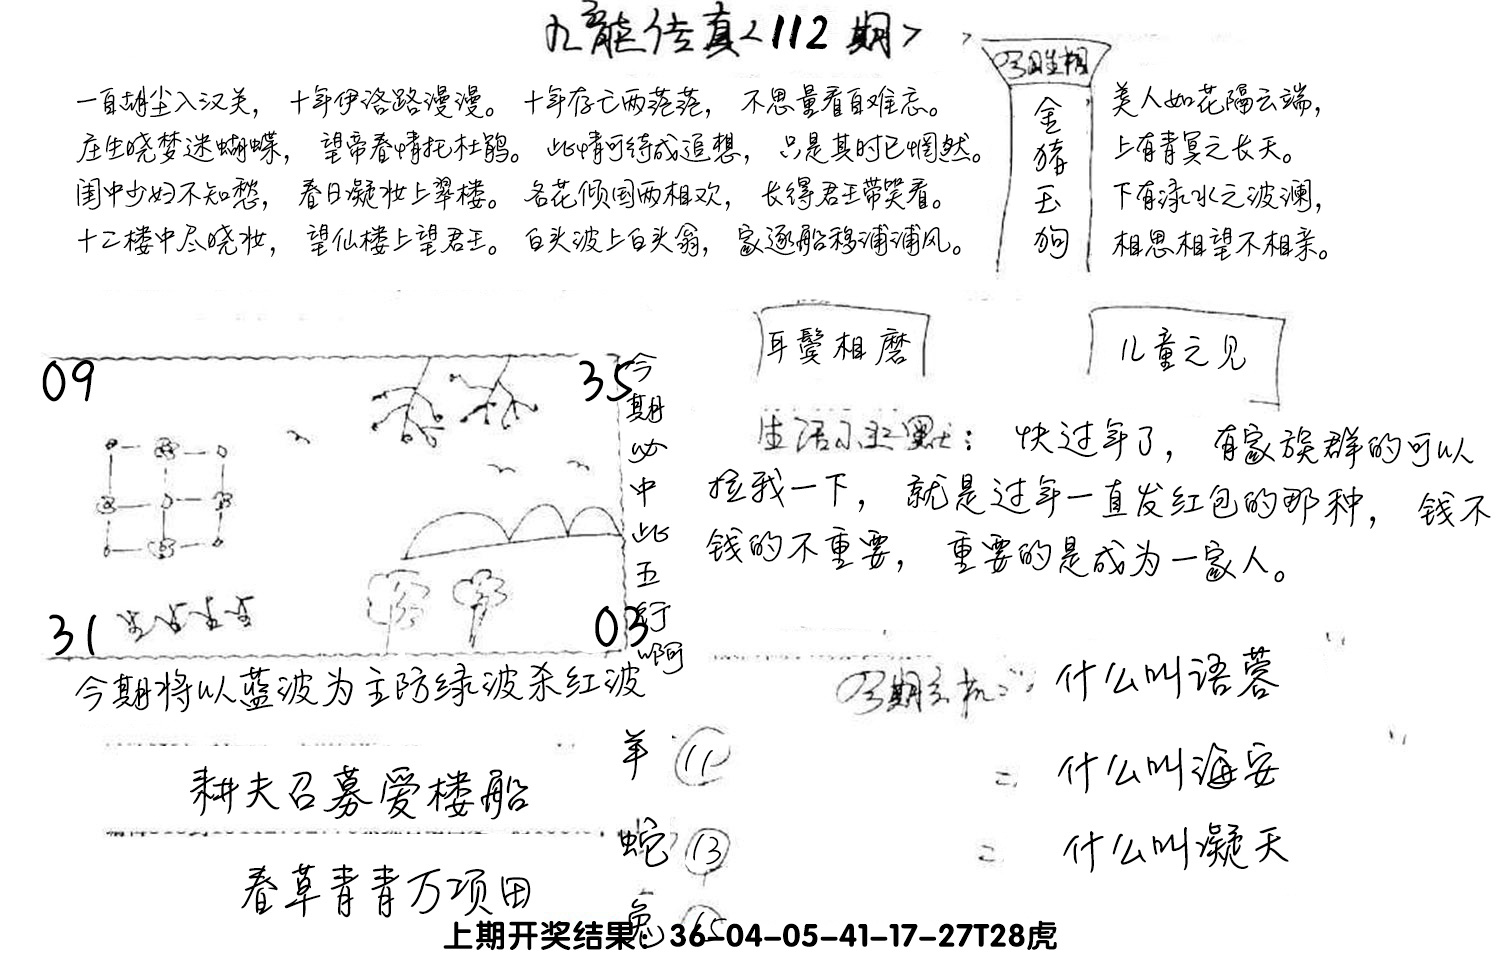 九龙传真<112期>
一自胡尘入汉关，十年伊洛路漫漫。十年存亡两茫茫，不思量看自难忘。
庄生晓梦迷蝴蝶，望帝春情托杜鹃。此情可待成追想，只是其时已惘然。
闺中少妇不知愁，春日凝妆上翠楼。名花倾国两相欢，长得君王带笑看。
十二楼中尽晓妆，望仙楼上望君王。白头波上白头翁，家逐船移浦浦风。
今日生相
金猪玉狗
美人如花隔云端，
上有青冥之长天。
下有渌水之波澜，
相思相望不相亲。
09
35
31
03
今期必中此五行啊
今期将以蓝波为主防绿波杀红波
耳鬓相磨
儿童之见
生活幽默：快过年了，有家族群的可以
拉我一下，就是过年一直发红包的那种，钱不
钱的不重要，重要的是成为一家人。
今期玄机：什么叫语蓉
什么叫海安
什么叫凝天
耕夫召募爱楼船
春草青青万项田
羊 11
蛇 13
兔
上期开奖结果：36-04-05-41-17-27T28虎